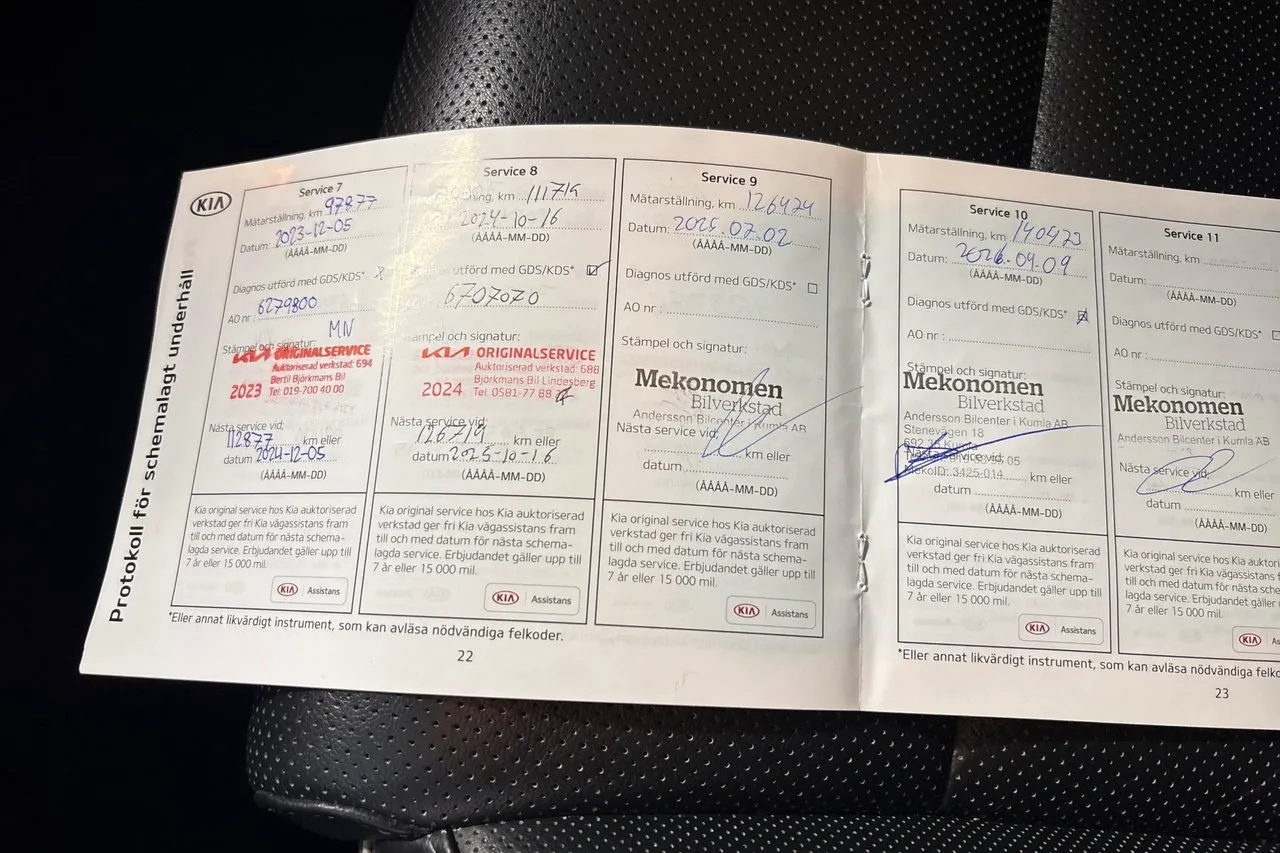 Protokoll för schemalagt underhåll
KIA
Service 7
Mätarställning, km 97877
Datum: 2023-12-05
(ÅÅÅÅ-MM-DD)
Diagnos utförd med GDS/KDS* X
AO nr : 6279800
MN
Stämpel och signatur:
KIA ORIGINALSERVICE
Auktoriserad verkstad: 694
Bertil Björkmans Bil
2023 Tel: 019-700 40 00
Nästa service vid:
112877 km eller
datum 2024-12-05
(ÅÅÅÅ-MM-DD)
Kia original service hos Kia auktoriserad
verkstad ger fri Kia vägassistans fram
till och med datum för nästa schema-
lagda service. Erbjudandet gäller upp till
7 år eller 15 000 mil.
KIA Assistans
Service 8
km 111719
2024-10-16
(ÅÅÅÅ-MM-DD)
utförd med GDS/KDS*
6707070
Stämpel och signatur:
KIA ORIGINALSERVICE
Auktoriserad verkstad: 688
Björkmans Bil Lindesberg
2024 Tel. 0581-77 88
Nästa service vid:
126719 km eller
datum 2025-10-16
(ÅÅÅÅ-MM-DD)
Kia original service hos Kia auktoriserad
verkstad ger fri Kia vägassistans fram
till och med datum för nästa schema-
lagda service. Erbjudandet gäller upp till
7 år eller 15 000 mil.
KIA Assistans
Service 9
Mätarställning, km 126424
Datum: 2025.07.02
(ÅÅÅÅ-MM-DD)
Diagnos utförd med GDS/KDS*
AO nr :
Stämpel och signatur:
Mekonomen
Bilverkstad
Andersson Bilcenter i Kumla AB
Nästa service vid:
km eller
datum
(ÅÅÅÅ-MM-DD)
Kia original service hos Kia auktoriserad
verkstad ger fri Kia vägassistans fram
till och med datum för nästa schema-
lagda service. Erbjudandet gäller upp till
7 år eller 15 000 mil.
KIA Assistans
*Eller annat likvärdigt instrument, som kan avläsa nödvändiga felkoder.
22
Service 10
Mätarställning, km 140473
Datum: 2026.04.09
(ÅÅÅÅ-MM-DD)
Diagnos utförd med GDS/KDS*
AO nr :
Stämpel och signatur:
Mekonomen
Bilverkstad
Andersson Bilcenter i Kumla AB
Stenevägen 18
Nästa service vid:
3425-014 km eller
datum
(ÅÅÅÅ-MM-DD)
Kia original service hos Kia auktoriserad
verkstad ger fri Kia vägassistans fram
till och med datum för nästa schema-
lagda service. Erbjudandet gäller upp till
7 år eller 15 000 mil.
KIA Assistans
Service 11
Mätarställning, km
Datum:
(ÅÅÅÅ-MM-DD)
Diagnos utförd med GDS/KDS*
AO nr :
Stämpel och signatur:
Mekonomen
Bilverkstad
Andersson Bilcenter i Kumla AB
Nästa service vid:
km eller
datum
(ÅÅÅÅ-MM-DD)
Kia original service hos Kia auktoriserad
verkstad ger fri Kia vägassistans
till och med datum för nästa schema-
lagda service. Erbjudandet gäller
7 år eller 15 000 mil.
KIA
*Eller annat likvärdigt instrument, som kan avläsa nödvändiga
23